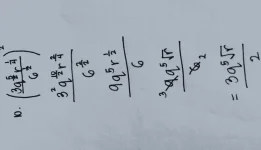 10. (3q^{5/2} r^{1/4} / 6^{1/2})^2
3^2 q^{10/2} r^{2/4} / 6^{2/2}
9q^5 r^{1/2} / 6
3 9q^5 √r / 6 2
= 3q^5 √r / 2